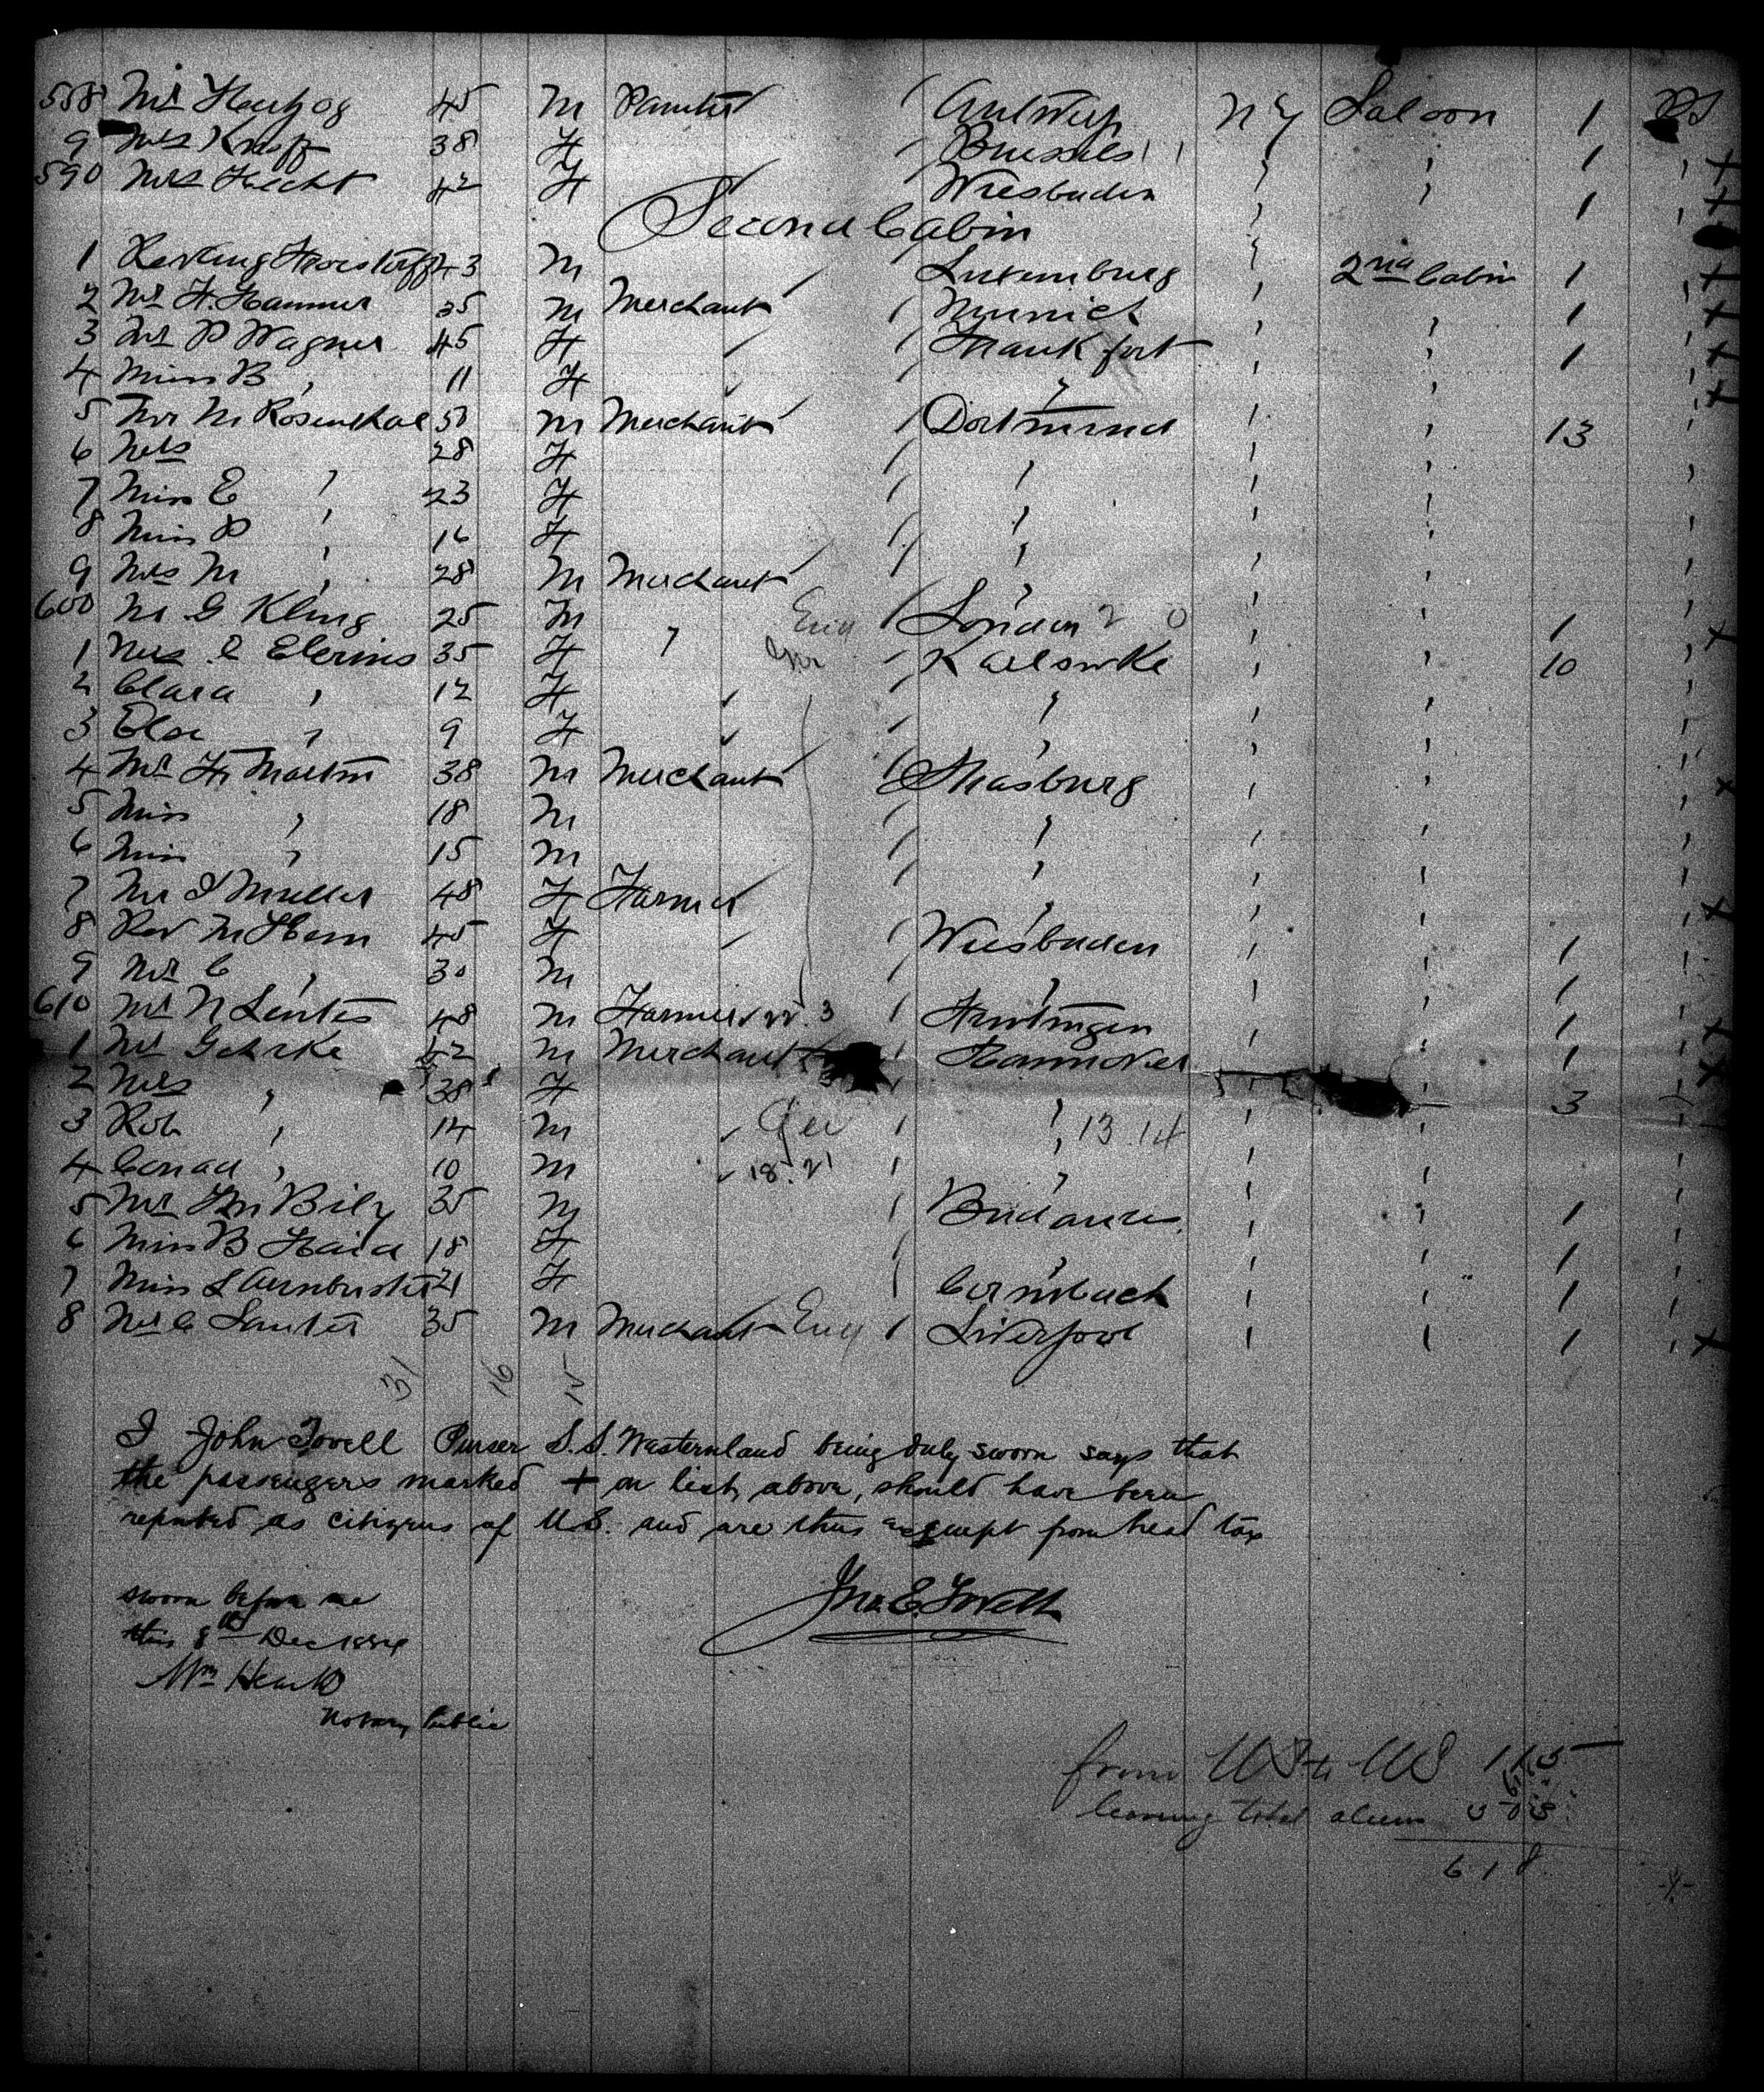 558 Mr Herzog 45 M Painter / Antwerp N Y Saloon 1
9 Mrs Knopf 38 F / Brussels 1
590 Mrs Hecht 42 F / Wiesbaden 1
Second Cabin
1 43 M Luxemburg 2nd Cabin 1
2 Mr F. Hammer 35 M Merchant / Munich 1
3 Mr P Wagner 45 F / Frankfort 1
4 Miss B " 11 F "
5 Mr M Rosenthal 50 M Merchant / Dortmund 13
6 Mrs 28 F / "
7 Miss E " 23 F / "
8 Miss P " 16 F / "
9 Mrs M " 28 M Merchant "
600 Mr G Kling 25 M Eng / London 1
1 Mrs 35 F " / 10
2 Clara " 12 F "
3 Else " 9 F "
4 Mr Fr Martin 38 M Merchant / Strasburg
5 Miss " 18 M / "
6 Miss " 15 M / "
7 Mr J Muller 48 F Farmer "
8 Rev M Horn 45 F / Wiesbaden 1
9 Mr C " 30 M / " 1
610 Mr N 48 M Farmer / 1
1 Mr Gehrke 42 M Merchant / Hannover 1
2 Mrs " 38 F 3
3 Rob " 14 M Ger / " 13 14
4 Conad " 10 M 18.21 / "
5 Mr 35 M / 1
6 Miss B 18 F / " 1
7 Miss L 21 F / 1
8 Mr C 35 M Merchant Eng / Liverpool 1
31 16 15
I John Tovell Purser S.S. Westernland being duly sworn says that
the passengers marked + on list, above, should have been
reported as citizens of U.S. and are thus exempt from head tax
Jno. E. Tovell
sworn before me
this 8th Dec 1884
Wm
Notary Public
from US to US 115
leaving total aliens
618